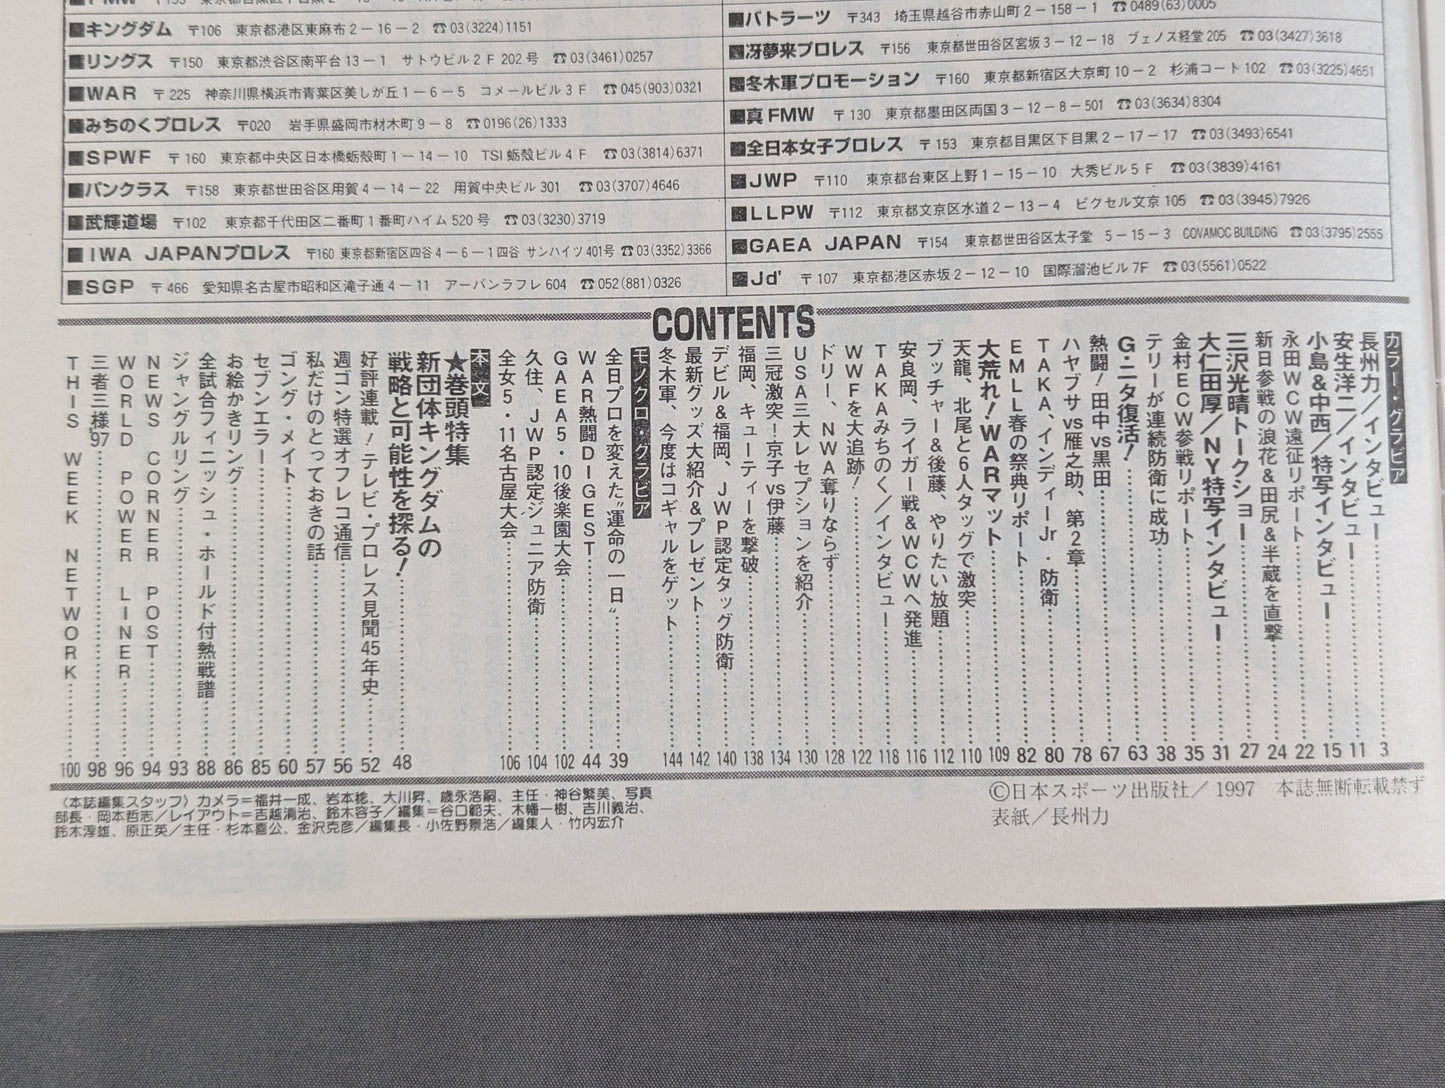 ■キングダム 〒106 東京都港区東麻布2－16－2 ☎03(3224)1151
■リングス 〒150 東京都渋谷区南平台13－1 サトウビル2F 202号 ☎03(3461)0257
■WAR 〒225 神奈川県横浜市青葉区美しが丘1－6－5 コメールビル3F ☎045(903)0321
■みちのくプロレス 〒020 岩手県盛岡市材木町9－8 ☎0196(26)1333
■SPWF 〒160 東京都中央区日本橋蛎殻町1－14－10 TSI蛎殻ビル4F ☎03(3814)6371
■パンクラス 〒158 東京都世田谷区用賀4－14－22 用賀中央ビル301 ☎03(3707)4646
■武輝道場 〒102 東京都千代田区二番町1番町ハイム520号 ☎03(3230)3719
■IWA JAPANプロレス 〒160 東京都新宿区四谷4－6－1四谷サンハイツ401号 ☎03(3352)3366
■SGP 〒466 愛知県名古屋市昭和区滝子通4－11 アーバンラフレ604 ☎052(881)0326
■バトラーツ 〒343 埼玉県越谷市赤山町2－158－1 ☎0489(63)0005
■冴夢来プロレス 〒156 東京都世田谷区宮坂3－12－18 ブェノス経堂205 ☎03(3427)3618
■冬木軍プロモーション 〒160 東京都新宿区大京町10－2 杉浦コート102 ☎03(3225)4651
■真FMW 〒130 東京都墨田区両国3－12－8－501 ☎03(3634)8304
■全日本女子プロレス 〒153 東京都目黒区下目黒2－17－17 ☎03(3493)6541
■JWP 〒110 東京都台東区上野1－15－10 大秀ビル5F ☎03(3839)4161
■LLPW 〒112 東京都文京区水道2－13－4 ビクセル文京105 ☎03(3945)7926
■GAEA JAPAN 〒154 東京都世田谷区太子堂 5－15－3 COVAMOC BUILDING ☎03(3795)2555
■Jd' 〒107 東京都港区赤坂2－12－10 国際溜池ビル7F ☎03(5561)0522
CONTENTS
カラー・グラビア
長州力／インタビュー……3
安生洋二／インタビュー……11
小島&中西／特写インタビュー……15
永田WCW遠征リポート……22
新日参戦の浪花&田尻&半蔵を直撃……24
三沢光晴トークショー……27
大仁田厚／NY特写インタビュー……31
金村ECW参戦リポート……35
テリーが連続防衛に成功……38
G・ニタ復活！……63
熱闘！田中vs黒田……67
ハヤブサvs雁之助、第2章……78
TAKA、インディーJr.防衛……80
EMLL春の祭典リポート……82
大荒れ！WARマット……109
天龍、北尾と6人タッグで激突……110
ブッチャー&後藤、やりたい放題……112
安良岡、ライガー戦&WCWへ発進……116
TAKAみちのく／インタビュー……118
WWFを大追跡！……122
ドリー、NWA奪りならず……128
USA三大レセプションを紹介……130
三冠激突！京子vs伊藤……134
福岡、キューティーを撃破……138
デビル&福岡、JWP認定タッグ防衛……140
最新グッズ大紹介&プレゼント……142
冬木軍、今度はコギャルをゲット……144
モノクロ・グラビア
全日プロを変えた“運命の一日”……39
WAR熱闘DIGEST……44
GAEA5・10後楽園大会……102
久住、JWP認定ジュニア防衛……104
全女5・11名古屋大会……106
本文
★巻頭特集
新団体キングダムの
戦略と可能性を探る！……48
好評連載！テレビ・プロレス見聞45年史……52
週ゴン特選オフレコ通信……56
私だけのとっておきの話……57
ゴング・メイト……60
セブンエラー……85
お絵かきリング……86
全試合フィニッシュ・ホールド付熱戦譜……88
ジャングルリング……93
NEWS CORNER POST……94
WORLD POWER LINER……96
三者三様'97……98
THIS WEEK NETWORK……100
〈本誌編集スタッフ〉カメラ＝福井一成、岩本稔、大川昇、歳永浩嗣、主任・神谷繁美、写真
部長・岡本哲志／レイアウト＝吉越清治、鈴木容子／編集＝谷口範夫、木幡一樹、吉川義治、
鈴木淳雄、原正英／主任・杉本喜公、金沢克彦／編集長・小佐野景浩／編集人・竹内宏介
©日本スポーツ出版社／1997 本誌無断転載禁ず
表紙／長州力